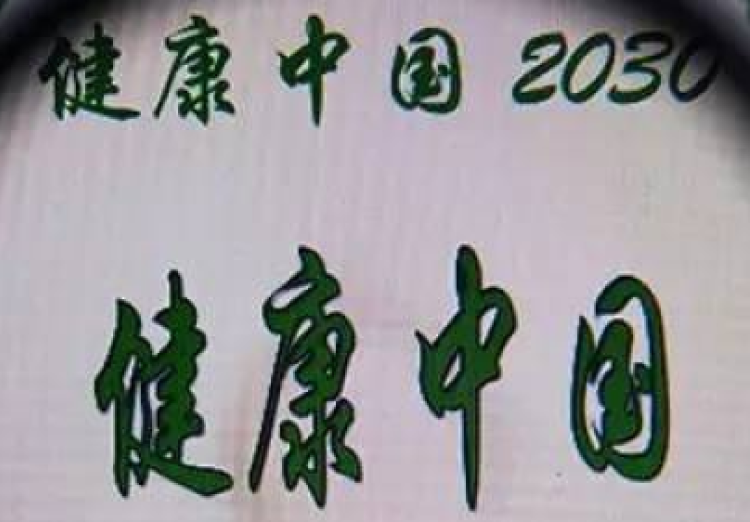 健康中国 2030
健康中国